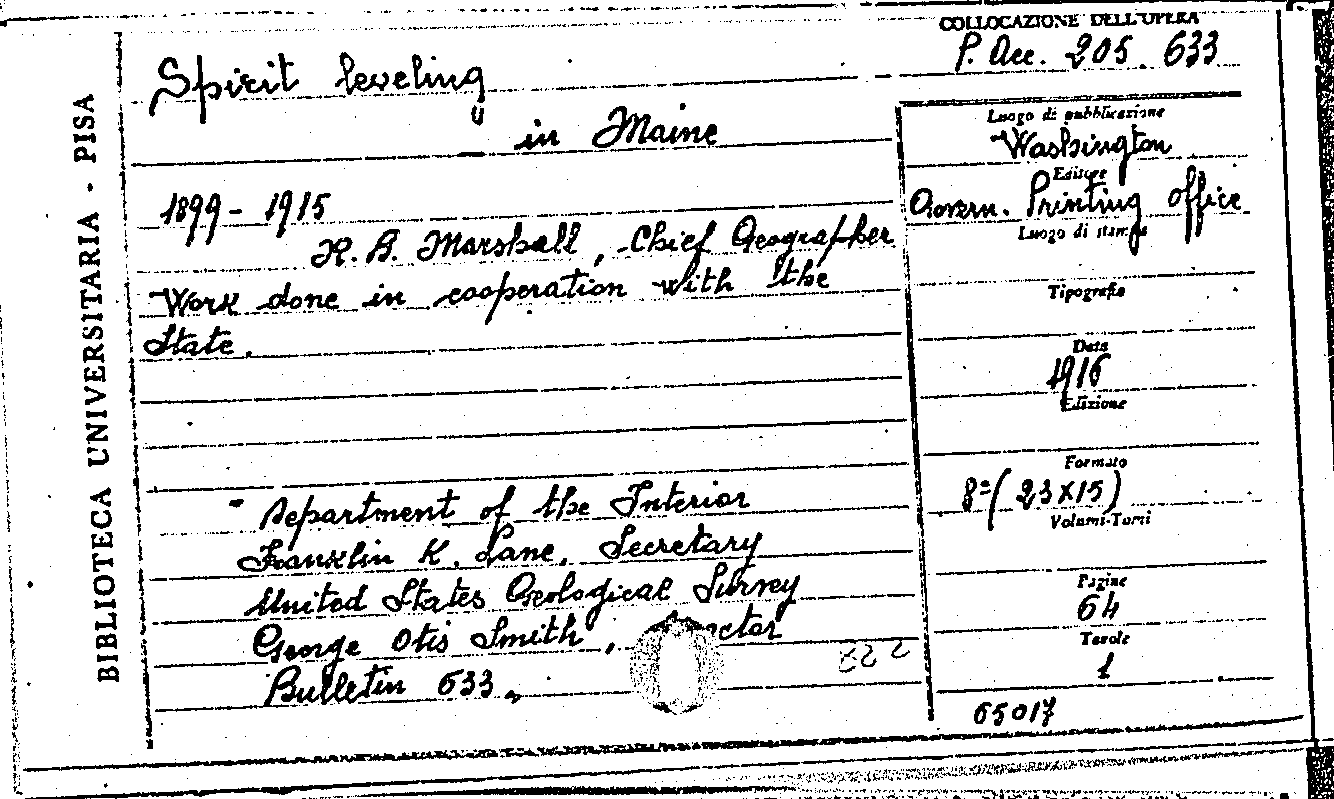 COLLOCAZIONE DELL'OPERA
P. Acc. 205. 633
BIBLIOTECA UNIVERSITARIA - PISA
Spirit leveling
in Maine
1899 - 1915
R. B. Marshall, Chief Geographer
Work done in cooperation with the
State.
"Department of the Interior
Franklin K. Lane, Secretary
United States Geological Survey
George Otis Smith,
Bulletin 633"
822
Luogo di pubblicazione
Washington
Editore
Govern. Printing Office
Luogo di stampa
Tipografia
Data
1916
Edizione
Formato
8º (23x15)
Volumi-Tomi
Pagine
64
Tavole
1
65017